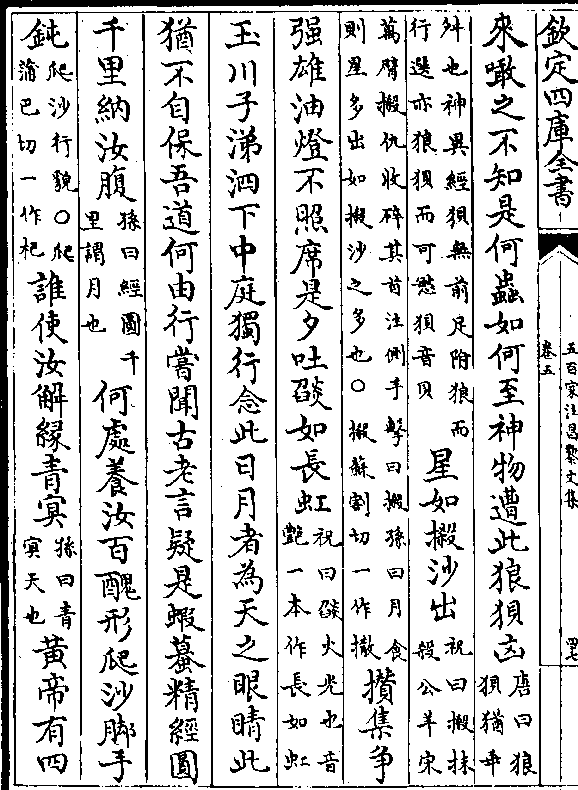 欽定四庫全書
五百家注昌黎文集
卷五
四七
來噉之不知是何蟲如何至神物遭此狼狽凶唐曰狼狽猶乖
舛也神異經狽無前足附狼而行選亦狼狽而可愍狽音貝星如摋沙出祝曰摋抹摋公羊宋
萬臂摋仇牧碎其首注側手擊曰摋孫曰月食則星多出如摋沙之多也○摋蘇割切一作撒攢集爭
强雄油燈不照席是夕吐燄如長虹祝曰燄火光也音艷一本作長如虹
玉川子涕泗下中庭獨行念此日月者為天之眼睛此
猶不自保吾道何由行嘗聞古老言疑是蝦蟇精經圓
千里納汝腹孫曰經圓千里謂月也何處養汝百醜形爬沙脚手
鈍爬沙行貌○爬蒲巴切一作杷誰使汝解緣青冥孫曰青冥天也黃帝有四